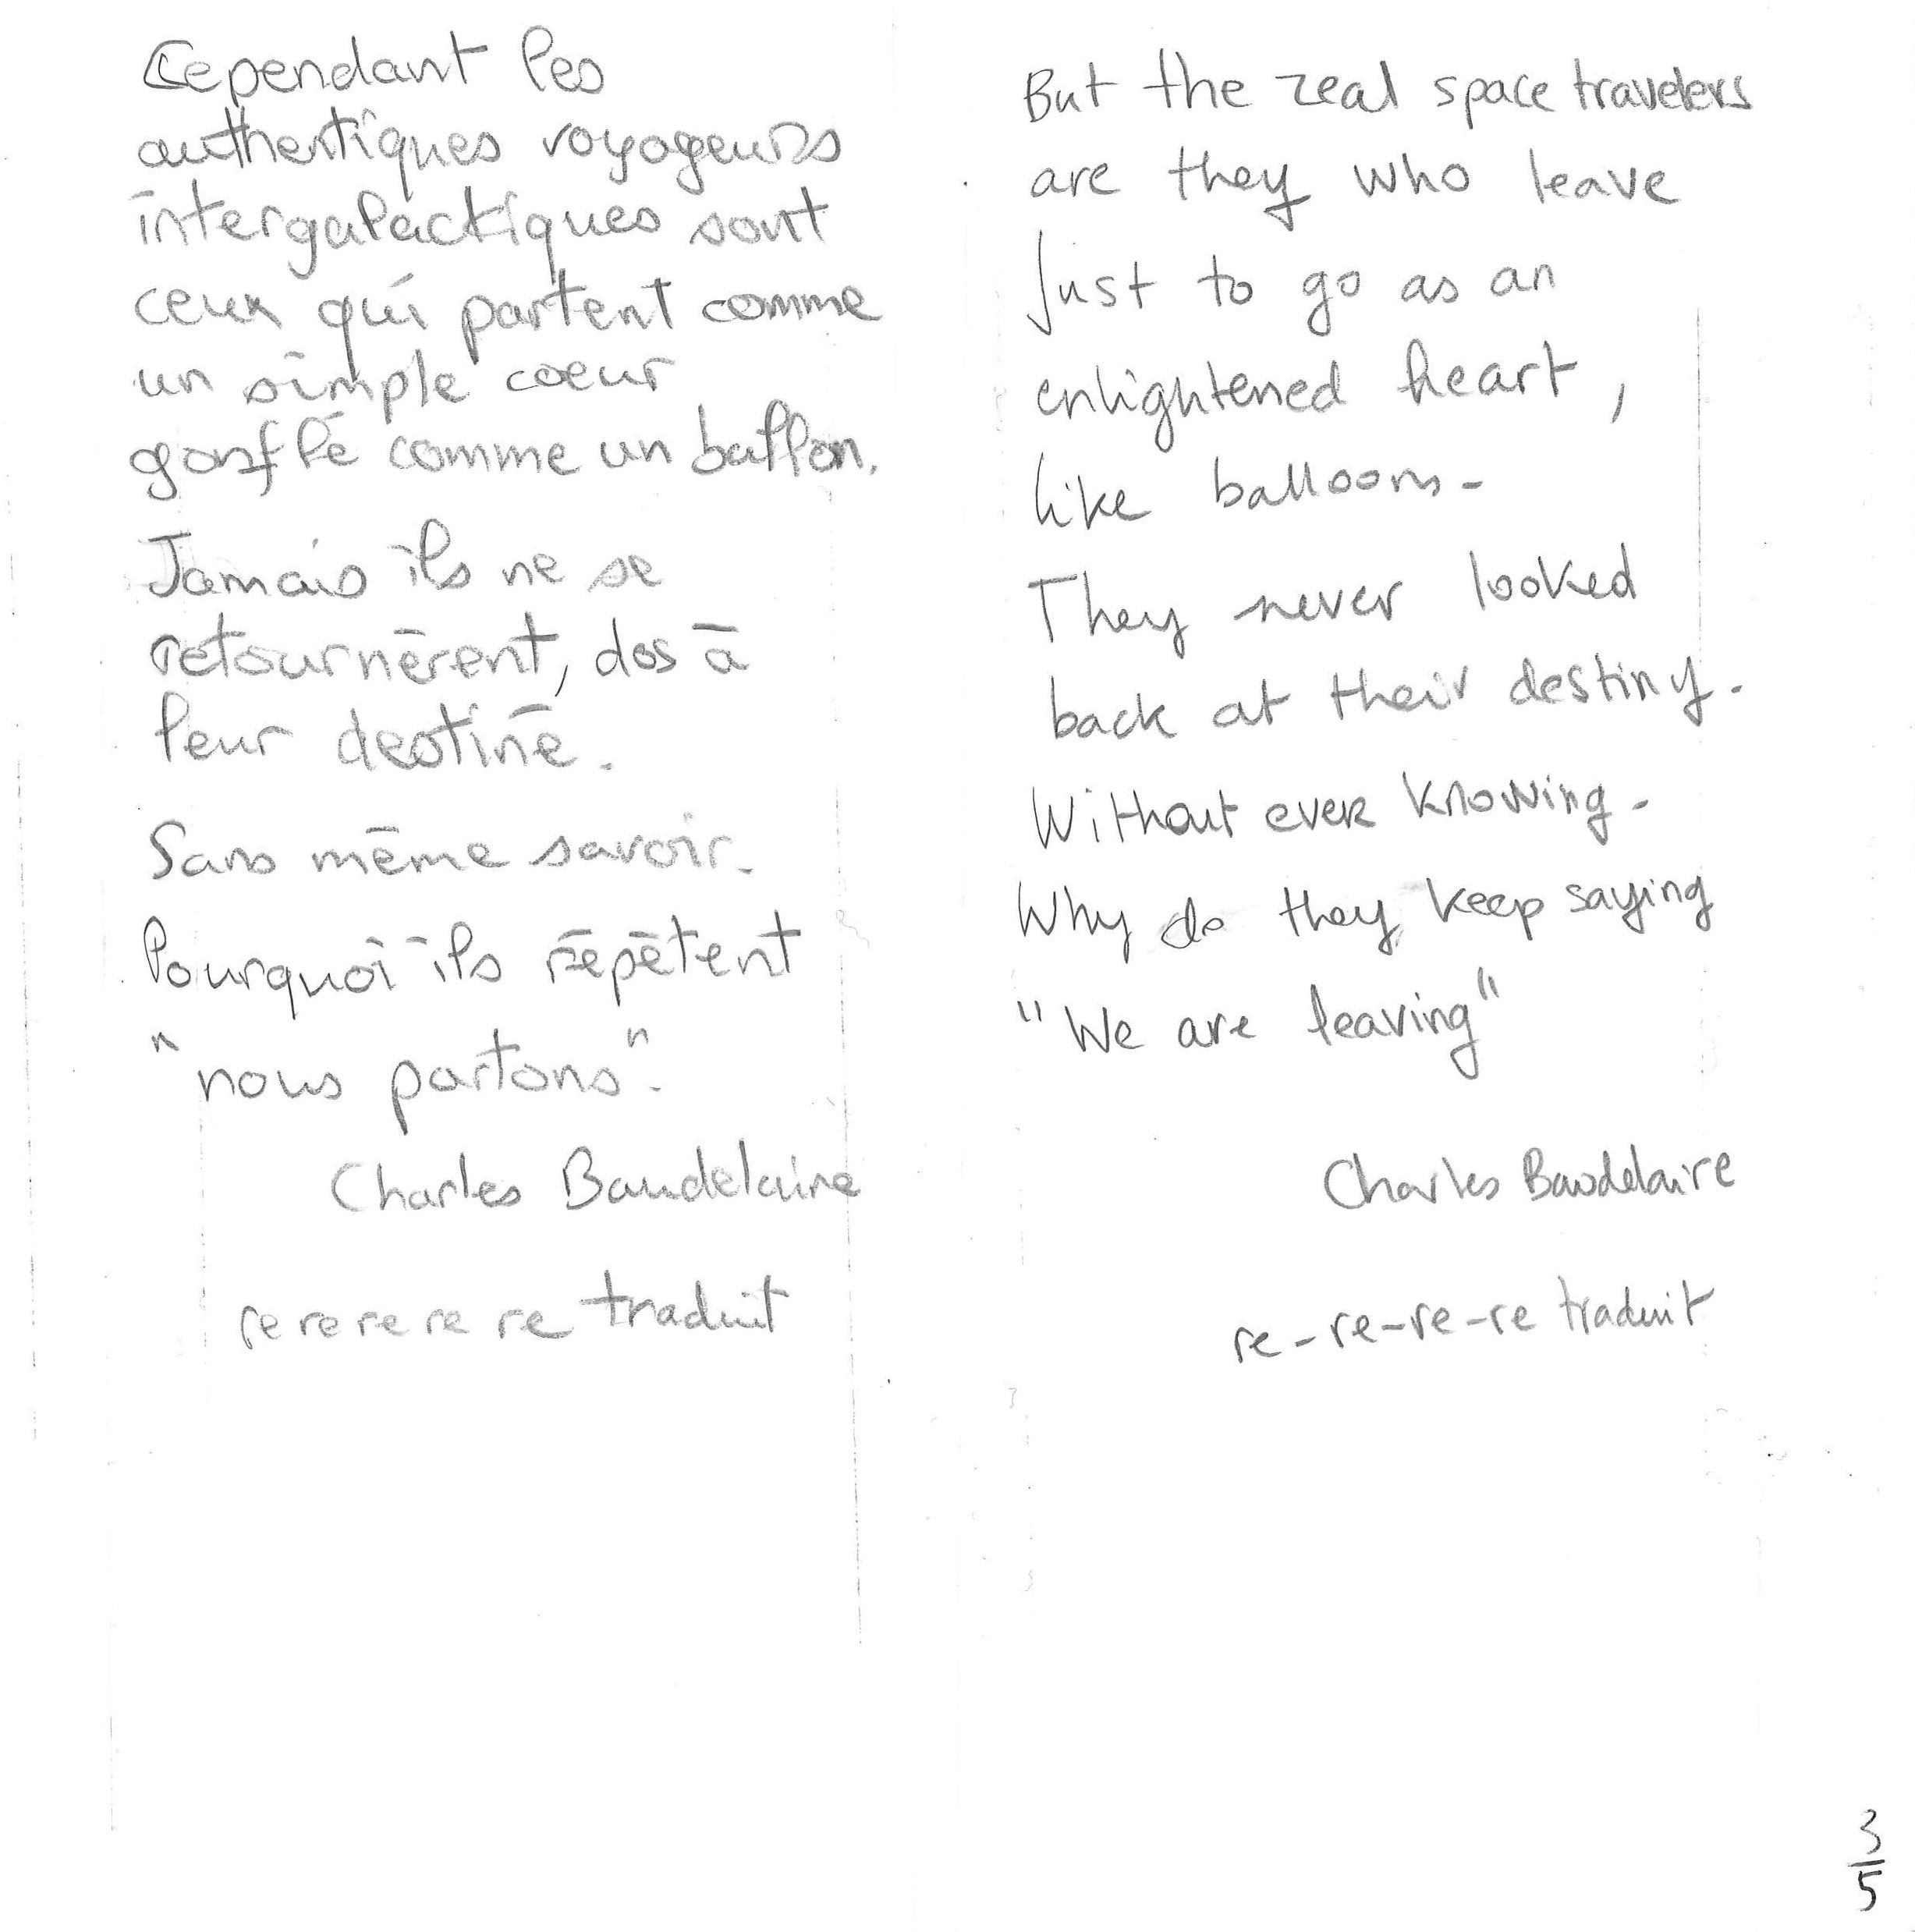 Cependant les
authentiques voyageurs
intergalactiques sont
ceux qui partent comme
un simple coeur
gonflé comme un ballon.
Jamais ils ne se
retournèrent, dos à
leur destiné.
Sans même savoir.
Pourquoi ils répètent
"nous partons".
Charles Baudelaire
re re re re re traduit
But the real space travelers
are they who leave
Just to go as an
enlightened heart,
like balloons.
They never looked
back at their destiny.
Without ever knowing.
Why do they keep saying
"We are leaving"
Charles Baudelaire
re-re-re-re traduit
3/5